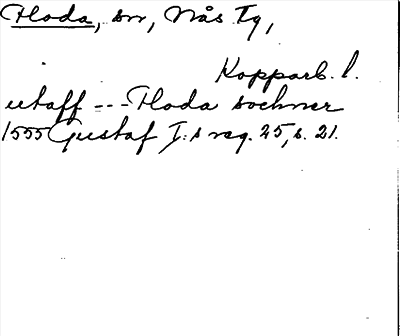 Floda, sn, Nås Tg,
Kopparb. l.
utaff --- Floda sochner
1555 Gustaf I:s reg. 25, s. 21.